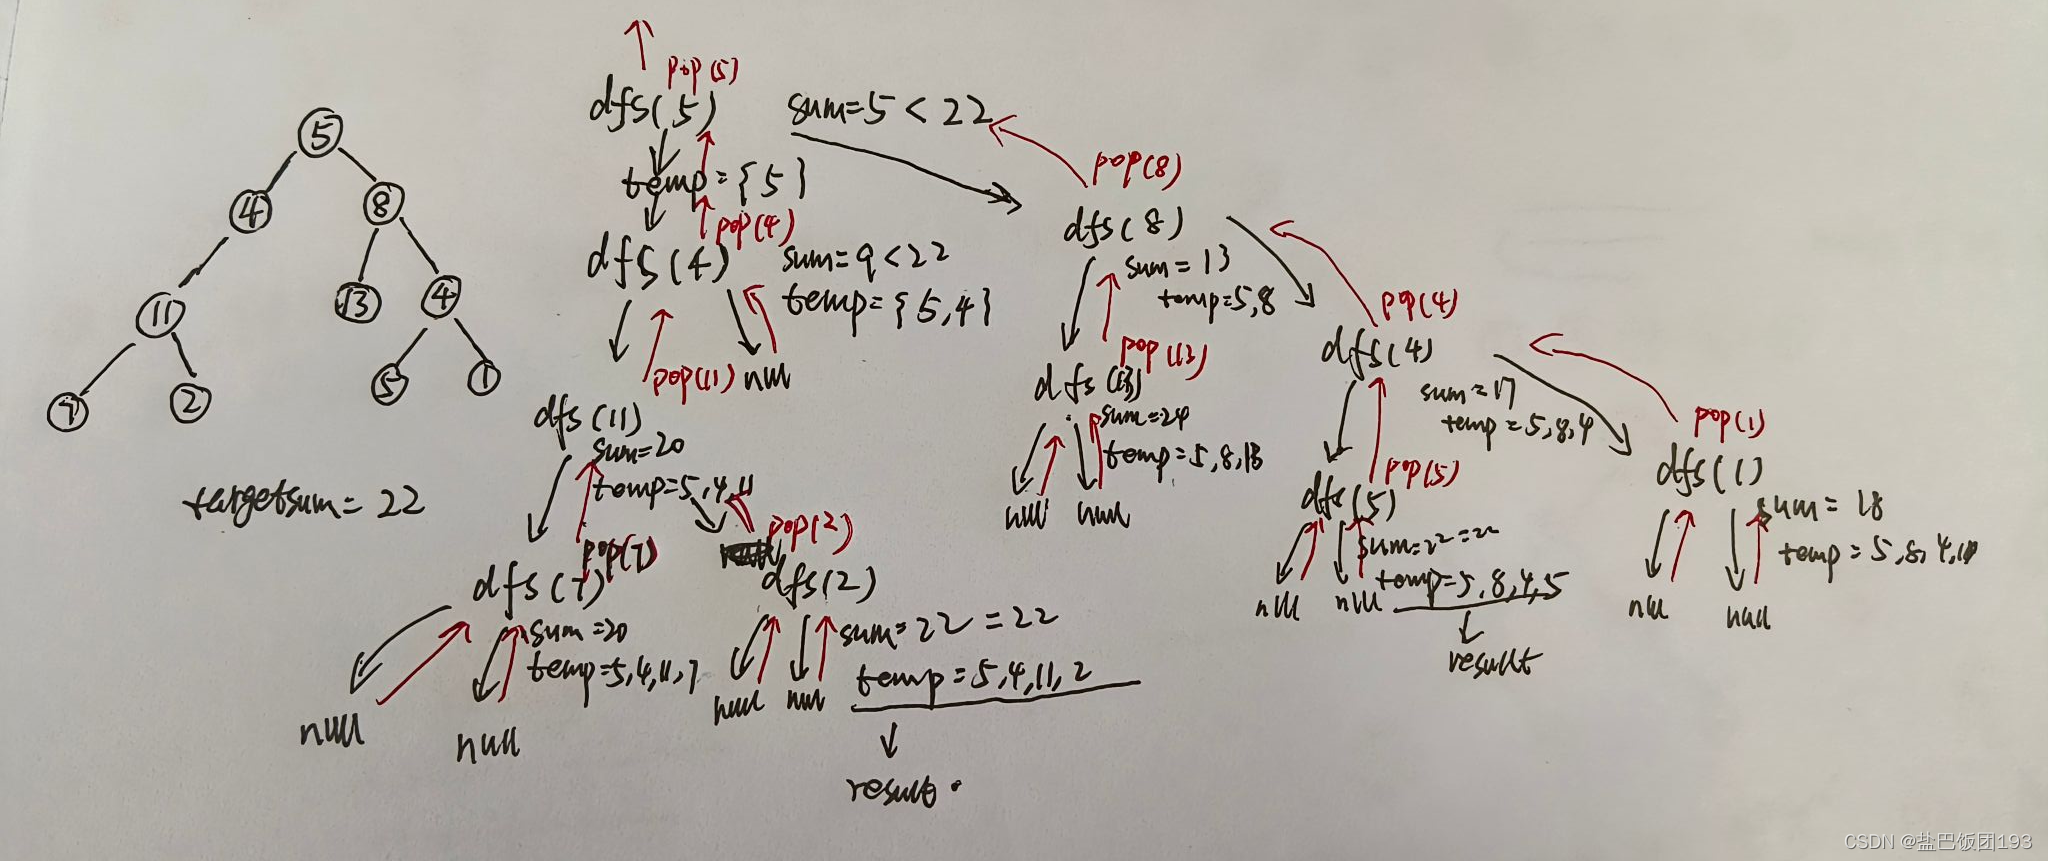 5
4
8
11
13
4
7
2
5
1
targetsum = 22
pop(5)
dfs(5)
sum=5 < 22
temp={5}
pop(4)
dfs(4)
sum=9<22
temp={5,4}
pop(11)
null
dfs(11)
sum=20
temp=5,4,11
pop(7)
dfs(7)
sum=20
temp=5,4,11,7
null
null
pop(2)
dfs(2)
sum=22=22
temp=5,4,11,2
null
null
result
pop(8)
dfs(8)
sum=13
temp=5,8
pop(13)
dfs(13)
sum=24
temp=5,8,13
null
null
pop(4)
dfs(4)
sum=17
temp=5,8,4
pop(5)
dfs(5)
sum=22=22
temp=5,8,4,5
null
null
result
pop(1)
dfs(1)
sum=18
temp=5,8,4,1
null
null
CSDN @盐巴饭团193